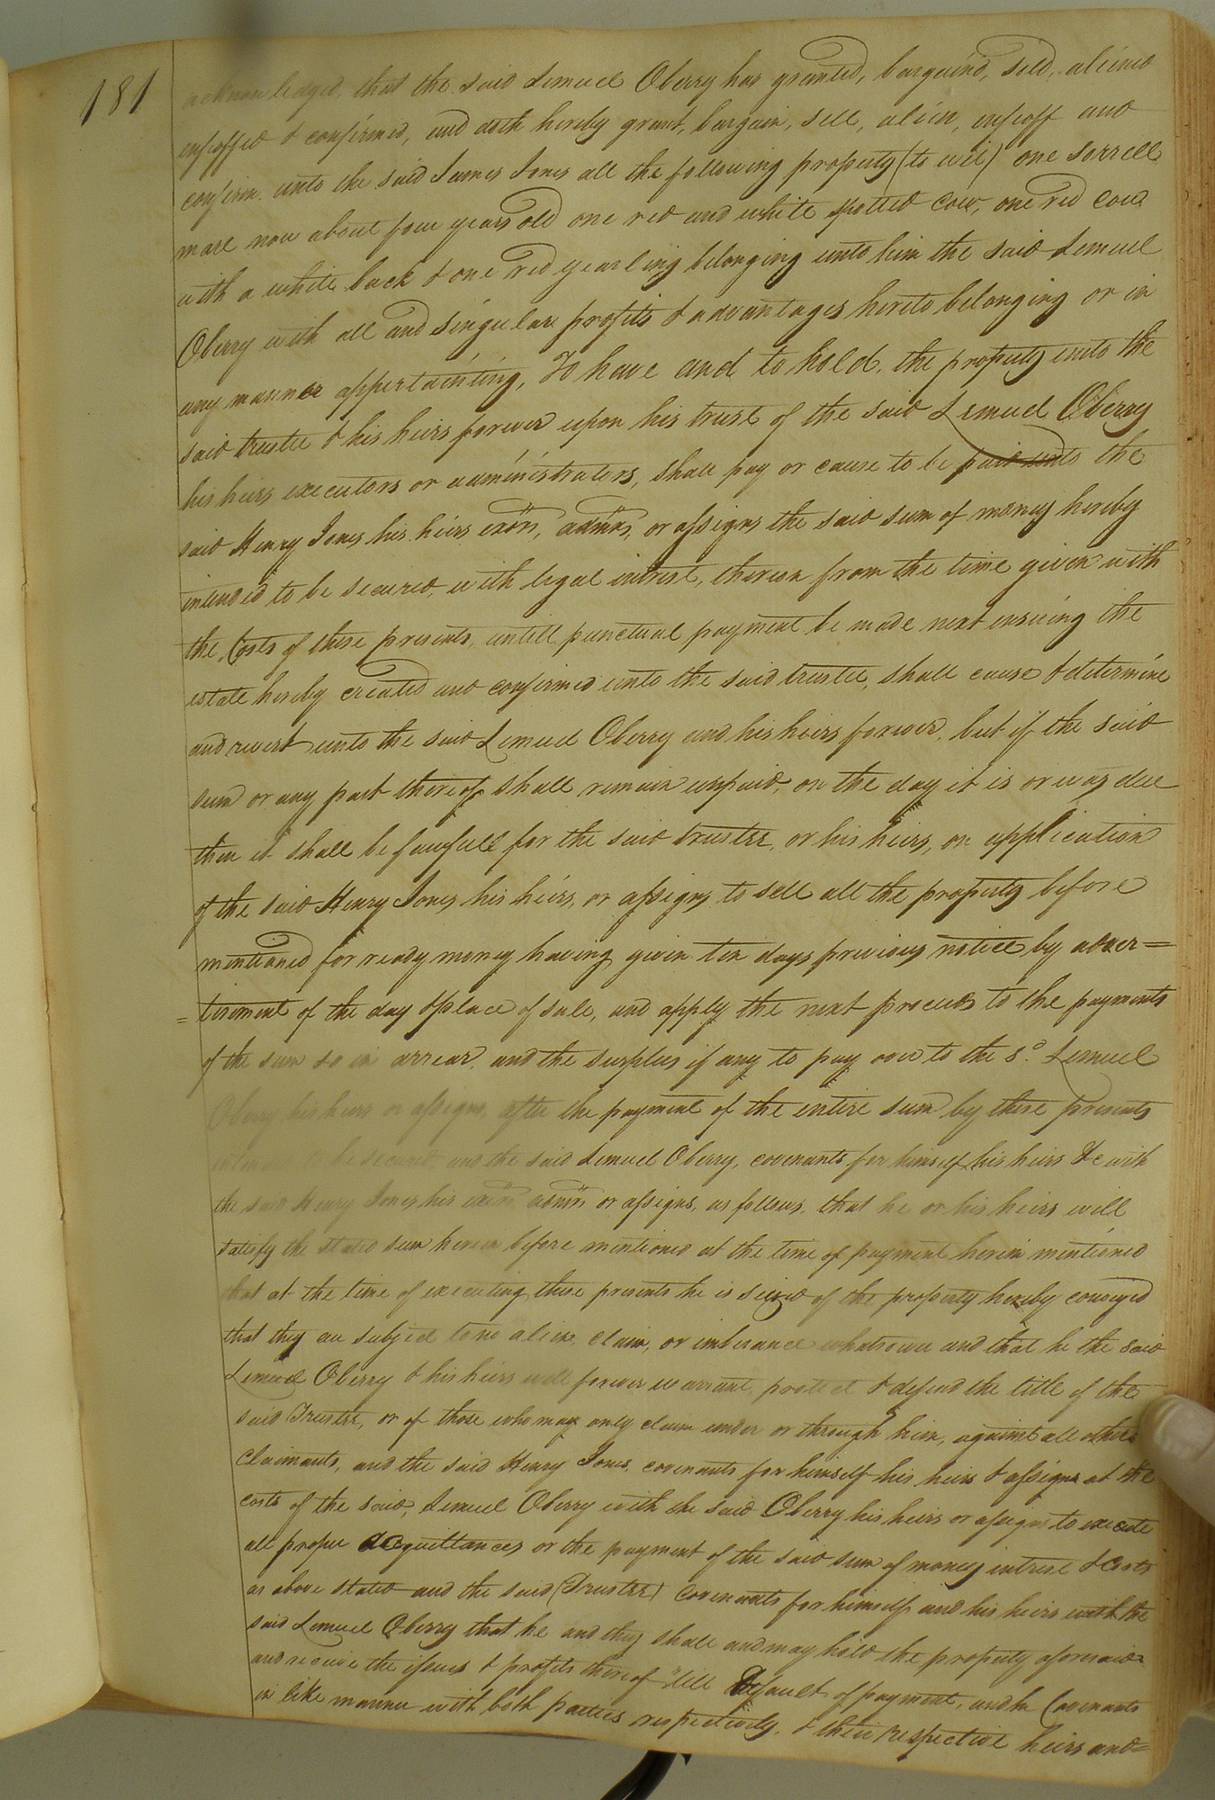 181
acknowledged, that the said Lemuel Oberry has granted, bargaind, sold, aliend
enfeoffed & confirmed, and doth hereby grant, bargain, sell, alien, enfeoff and
confirm unto the said James Jones all the following property (to wit) one sorrell
mare now about four years old one red and white spotted cow, one red cow
with a white back & one red yearling belonging unto him the said Lemuel
Oberry with all and singular profits & advantages hereto belonging or in
any manner appertainting, To have and to hold, the property unto the
said trustee & his heirs forever upon his trust of the said Lemuel Oberry
his heirs executors or administrators, shall pay or cause to be paid unto the
said Henry Jones his heirs exōrs, admōrs, or assigns the said sum of money hereby
intended to be secured, with legal intrest, thereon from the time given with
the Costs of these presents, untill punctual payment be made next ensuing the
estate hereby created and confirmed unto the said trustee, shall cause & determine
and revert unto the said Lemuel Oberry and his heirs forever, but if the said
sum or any part thereof shall remain unpaid, on the day it is or was due
then it shall be faufull for the said trustee, or his heirs, on application
of the said Henry Jones his heirs, or assigns to sell all the property before
mentioned for ready money having given ten days previous notice by adver=
=tisement of the day & place of sale, and apply the next proceeds to the payments
of the sum so in arrear, and the surplus if any to pay over to the sd. Lemuel
Oberry his heirs or assigns, after the payment of the entire sum by these presents
intended to be secured, and the said Lemuel Oberry, covenants for himself his heirs &c with
the said Henry Jones his exōrs admōrs or assigns, as follows, that he or his heirs will
satisfy the stated sum herein before mentioned at the time of payment herein mentioned
that at the time of executing these presents he is seized of the property hereby conveyed
that they are subject to no alien, claim, or imberance whatsoever and that he the said
Lemuel Oberry & his heirs will forever warrant, protect & defend the title of the
said Trustee, or of those who may only claim under or through him, against all others
Claimants, and the said Henry Jones, covenants for himself his heirs & assigns at the
costs of the said, Lemuel Oberry with the said Oberry his heirs or assigns to execute
all proper acquittances or the payment of the said sum of money intrest & Costs
as above stated and the said (Trustee) covenants for himself and his heirs with the
said Lemuel Oberry that he and they shall and may hold the property aforesaid
and receive the issues & profits thereof 'till Default of payment, and he Covenants
in like manner with both parties respectively, & their respective heirs and=